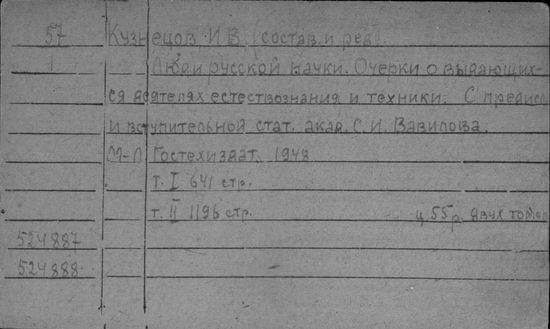 57 Кузнецов И.В. (состав. и ред.)
1 Люди русской науки. Очерки о выдающих-
ся деятелях естествознания и техники. С предисл.
и вступительной стат. акад. С.И. Вавилова.
М-Л Гостехиздат, 1948
т. I 641 стр.
т. II 1196 стр. ц. 55 р. двух томов
524887
524888